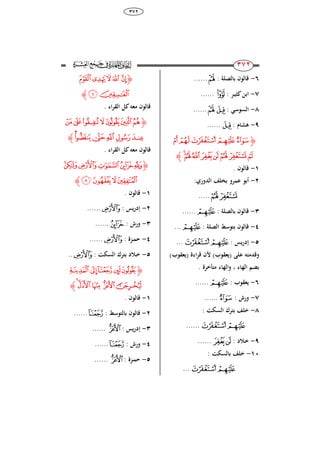 ٣٧٢
٣٧٢
٦- قالون بالصلة : لَهُمْ ......
٧- ابن كثير : لَوَّوْاْ ......
٨- السوسي : قِيلَ لَهُمْ ......
٩- هشام : قِيلَ ......
﴿ سَوَآءٌ عَلَيْهِمْ أَسْتَغْفَرْتَ لَهُمْ أَمْ
لَمْ تَسْتَغْفِرْ لَهُمْ لَن يَغْفِرَ ٱللَّهُ لَهُمْ ﴾
١- قالون .
٢- أبو عمرو بخلف الدوري:
تَسْتَغْفِرْ لَهُمْ ......
٣- قالون بالصلة : عَلَيْهِمْ ......
٤- قالون بتوسط الصلة : عَلَيْهِمْ ...
٥- إدريس : عَلَيْهِمْ أَسْتَغْفَرْتَ ...
وقدمته على (يعقوب) لأن قراءة (يعقوب)
بضم الهاء ، والهاء متأخرة .
٦- يعقوب : عَلَيْهُمْ ......
٧- ورش : سَوَآءٌ ......
٨- خلف بترك السكت :
عَلَيْهُمْ أَسْتَغْفَرْتَ ......
٩- خلاد : لَن يَغْفِرَ ......
١٠- خلف بالسكت :
عَلَيْهُمْ أَسْتَغْفَرْتَ ...
﴿ إِنَّ ٱللَّهَ لَا يَهْدِى ٱلْقَوْمَ
ٱلْفَـٰسِقِينَ ٦ ﴾
قالون معه كل القراء .
﴿ هُمُ ٱلَّذِينَ يَقُولُونَ لَا تُنفِقُواْ عَلَىٰ مَنْ
عِندَ رَسُولِ ٱللَّهِ حَتَّىٰ يَنفَضُّواْ ﴾
قالون معه كل القراء .
﴿ وَلِلَّهِ خَزَآئِنُ ٱلسَّمَـٰوَٰتِ وَٱلْأَرْضِ وَلَـٰكِنَّ
ٱلْمُنَـٰفِقِينَ لَا يَفْقَهُونَ ٧ ﴾
١- قالون .
٢- إدريس : وَٱلْأَرْضِ ......
٣- ورش : خَزَآئِنُ ......
٤- حمزة : وَٱلْأَرْضِ ......
٥- خلاد بترك السكت : وَٱلْأَرْضِ ..
﴿ يَقُولُونَ لَئِن رَّجَعْنَآ إِلَى ٱلْمَدِينَةِ
لَيُخْرِجَنَّ ٱلْأَعَزُّ مِنْهَا ٱلْأَذَلَّ ﴾
١- قالون .
٢- قالون بالتوسط : رَّجَعْنَآ ......
٣- إدريس : ٱلْأَعَزُّ ......
٤- ورش : رَّجَعْنَآ ......
٥- حمزة : ٱلْأَعَزُّ ......